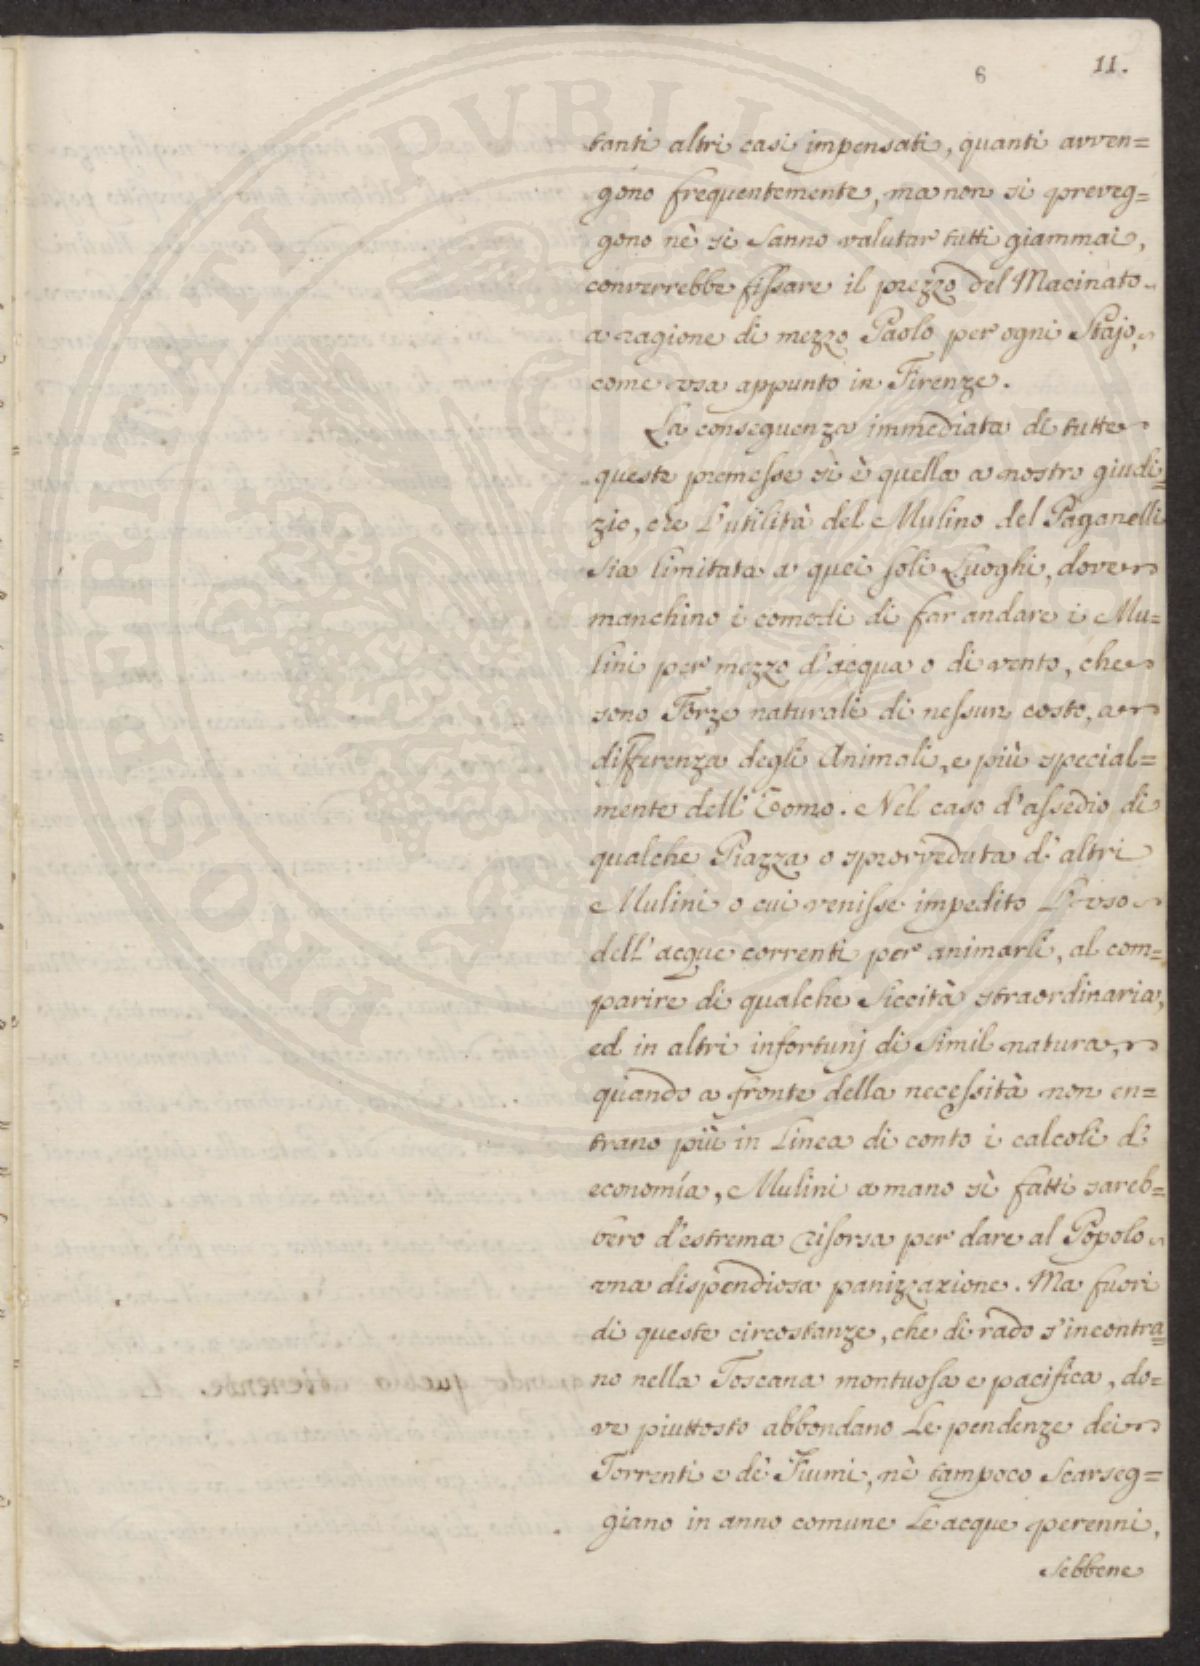 8
11.
tanti altri casi impensati, quanti avven=
gono frequentemente, ma non si preveg=
gono nè si sanno valutar tutti giammai,
converrebbe fissare il prezzo del Macinato
a ragione di mezzo Paolo per ogni Stajo,
come usa appunto in Firenze.
La conseguenza immediata di tutte
queste premesse si è quella a nostro giudi=
zio, che l'utilità del Mulino del Paganelli
sia limitata a quei soli Luoghi, dove
manchino i comodi di far andare i Mu=
lini per mezzo d'acqua o di vento, che
sono Forze naturali di nessun costo, a
differenza degli Animali, e più special=
mente dell'Uomo. Nel caso d'assedio di
qualche Piazza o sprovveduta d'altri
Mulini o cui venisse impedito l'uso
dell'acque correnti per animarli, al com=
parire di qualche siccità straordinaria,
ed in altri infortunj di simil natura,
quando a fronte della necessità non en=
trano più in linea di conto i calcoli d'
economía, Mulini a mano sì fatti sareb=
bero d'estrema risorsa per dare al Popolo
una dispendiosa panizzazione. Ma fuori
di queste circostanze, che di rado s'incontra=
no nella Toscana montuosa e pacifica, do=
ve piuttosto abbondano le pendenze dei
Torrenti e de' Fiumi, nè tampoco scarseg=
giano in anno comune le acque perenni,
sebbene
PROSPERITATI PUBLICAE